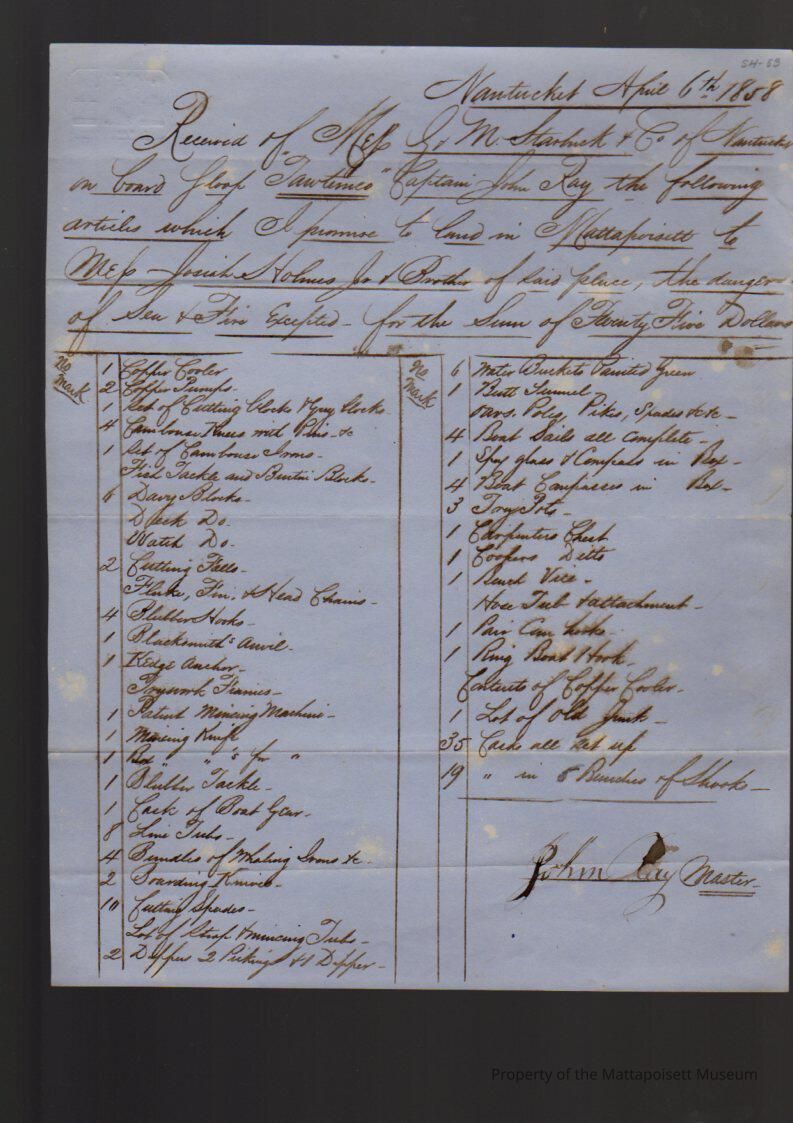 SH-63
Nantucket April 6th 1858
Received of Mess G & M. Starbuck & Co of Nantucket
on board Sloop "Tawtemeo" Captain John Ray the following
articles which I promise to land in Mattapoisett to
Mess Josiah Holmes Jr & Brother of said place, the danger
of Sea & Fire Excepted - for the Sum of Twenty Five Dollars
No Mark
1 Copper Cooler
2 Copper Pumps -
1 Set of Cutting Blocks & Guy Blocks
4 Cambouse Knees with Pins &c
1 Set of Cambouse Irons -
Fish Tackle and Burtin Blocks -
6 Davy Blocks -
Deck Do -
Watch Do -
2 Cutting Falls -
Fluke, Fin, & Head Chains -
4 Blubber Hooks -
1 Blacksmith's Anvil -
1 Kedge Anchor -
Trywork Frames -
1 Patent Mincing Machine -
1 Mincing Knife
1 Box " "s for "
1 Blubber Tackle -
1 Cask of Boat Gear -
8 Line Tubs -
4 Bundles of Whaling Irons &c -
2 Boarding Knives -
10 Cutting Spades -
Lot of Strap & mincing Tubs -
2 2 &1 Dipper -
No Mark
6 Water Buckets Painted Green
1 Butt Tunnel
Oars, Poles, Pikes, Spades &c &c -
4 Boat Sails all complete -
1 Spy glass & Compass in Box -
4 Boat Compasses in Box -
3 Try Pots -
1 Carpenters Chest
1 Coopers Ditto
1 Bench Vice -
Hose Tub & attachment -
1 Pair Can hooks -
1 Ring Boat Hook -
Contents of Copper Cooler -
1 Lot of Old Junk -
35 Casks all set up
19 " in 5 Bunches of Shooks -
John Ray Master -
Property of the Mattapoisett Museum